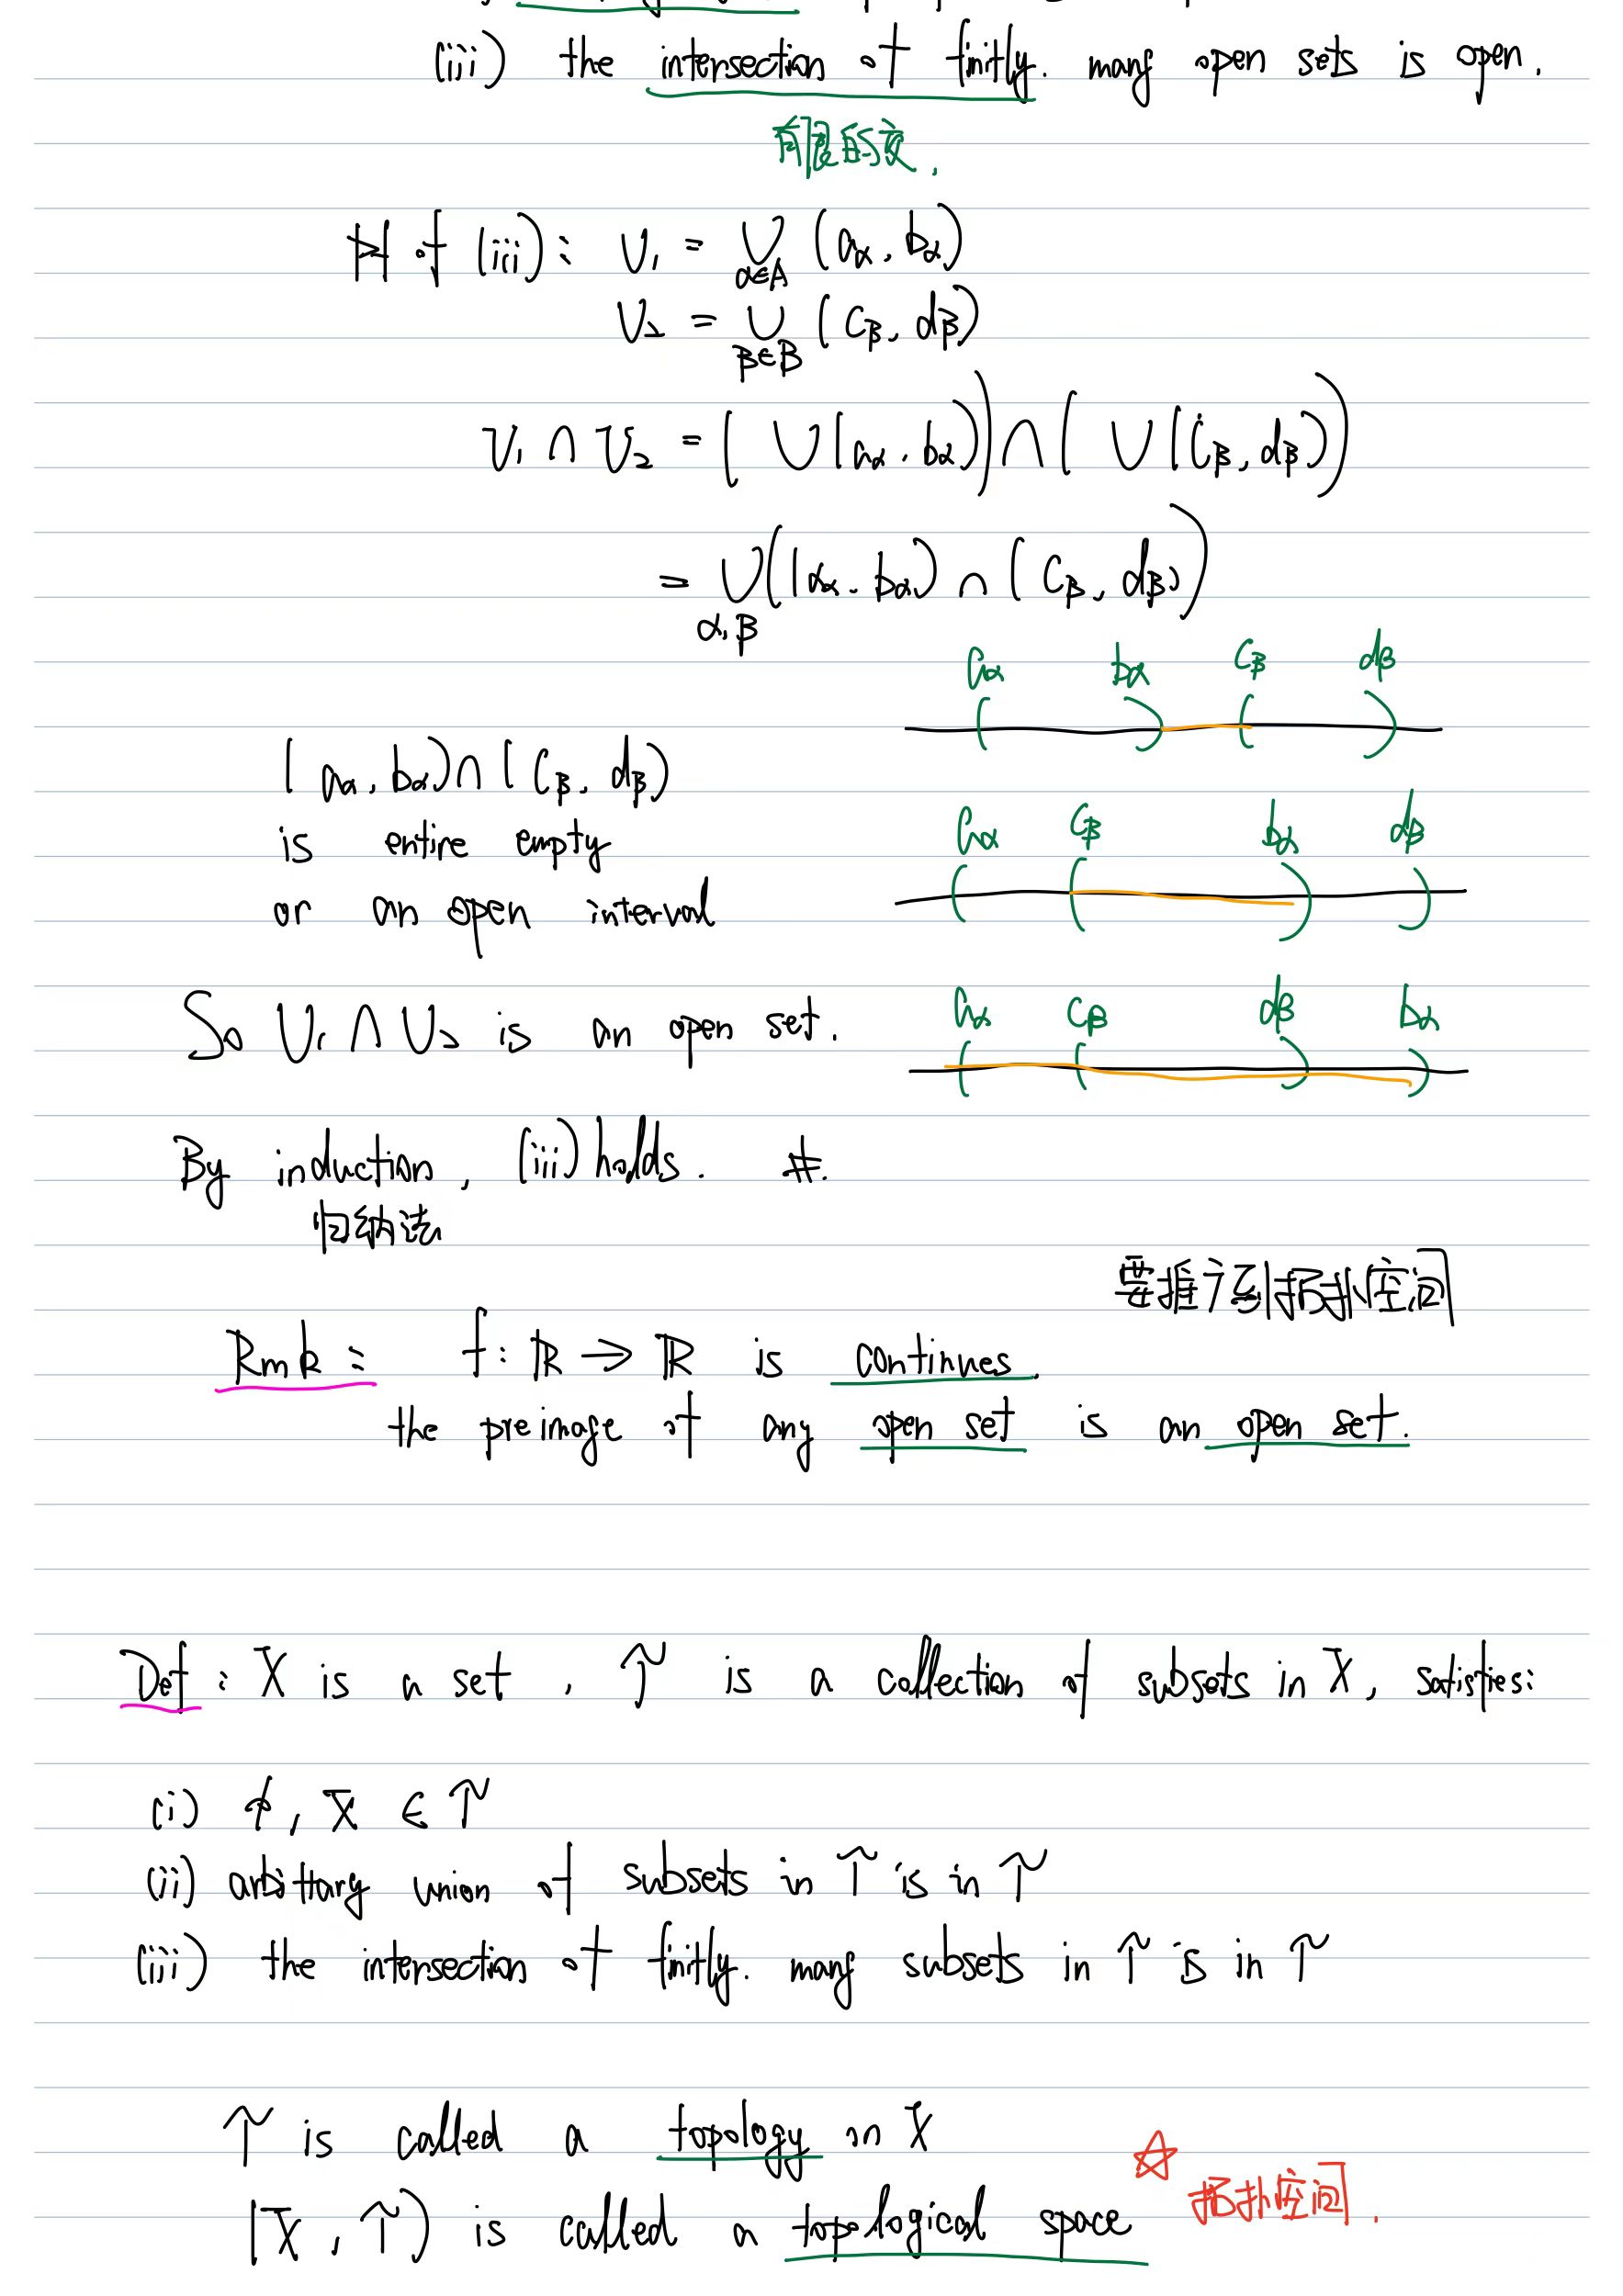 (iii) the intersection of finitly. many open sets is open.
有限的交.
Pf of (iii): U₁ = ⋃_{α∈A} (a_α, b_α)
U₂ = ⋃_{β∈B} (c_β, d_β)
U₁ ∩ U₂ = (⋃(a_α, b_α)) ∩ (⋃(c_β, d_β))
= ⋃_{α,β} ((a_α, b_α) ∩ (c_β, d_β))
a_α b_α c_β d_β
(a_α, b_α) ∩ (c_β, d_β)
a_α c_β b_α d_β
is entire empty
or an open interval
a_α c_β d_β b_α
So U₁ ∩ U₂ is an open set.
By induction, (iii) holds. #.
归纳法
要推广到拓扑空间
Rmk: f: ℝ → ℝ is continues.
the preimage of any open set is an open set.
Def: X is a set, 𝒯 is a collection of subsets in X, satisfies:
(i) ϕ, X ∈ 𝒯
(ii) arbittary union of subsets in 𝒯 is in 𝒯
(iii) the intersection of finitly. many subsets in 𝒯 is in 𝒯
𝒯 is called a topology on X
(X, 𝒯) is called a topological space ☆ 拓扑空间.